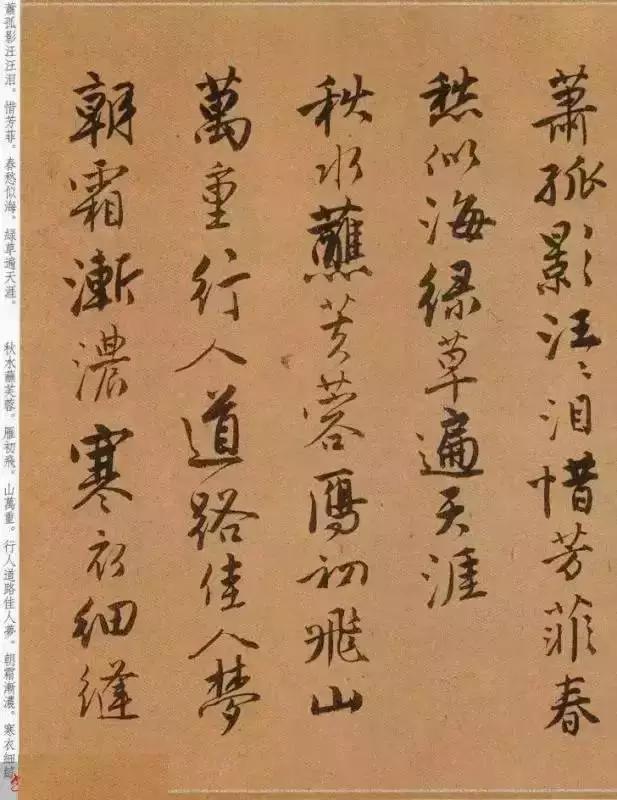 蕭孤影汪汪泪惜芳菲春
愁似海緑草遍天涯
秋水蘸芙蓉鴈初飛山
萬重行人道路佳人夢
朝霜漸濃寒衣細縫
蕭孤影汪汪泪。惜芳菲。春愁似海。緑草遍天涯。 秋水蘸芙蓉。雁初飛。山萬重。行人道路佳人夢。朝霜漸濃。寒衣細縫